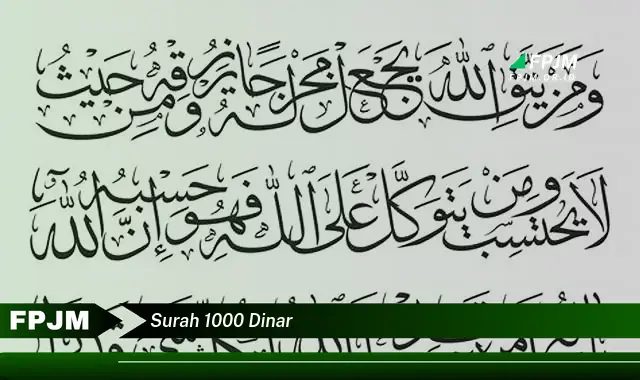 FPJM
FPJM.OR.ID
وَمَنْ يَتَّقِ اللَّهَ يَجْعَلْ لَهُ مَخْرَجًا وَيَرْزُقْهُ مِنْ حَيْثُ
لَا يَحْتَسِبُ وَمَنْ يَتَوَكَّلْ عَلَى اللَّهِ فَهُوَ حَسْبُهُ إِنَّ اللَّهَ
FPJM
Surah 1000 Dinar